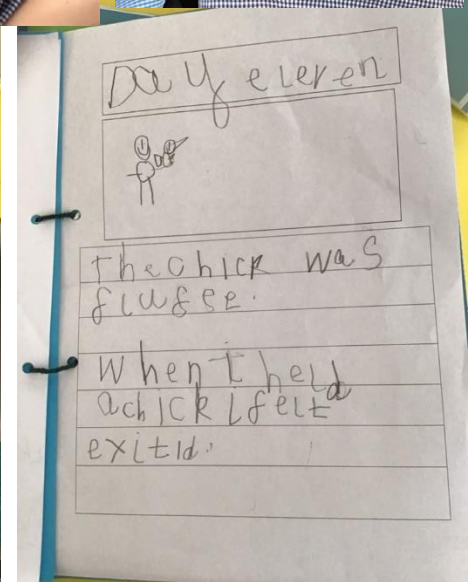 Day eleven
the chick was
flufee.
When I held
a chick i felt
exitid.